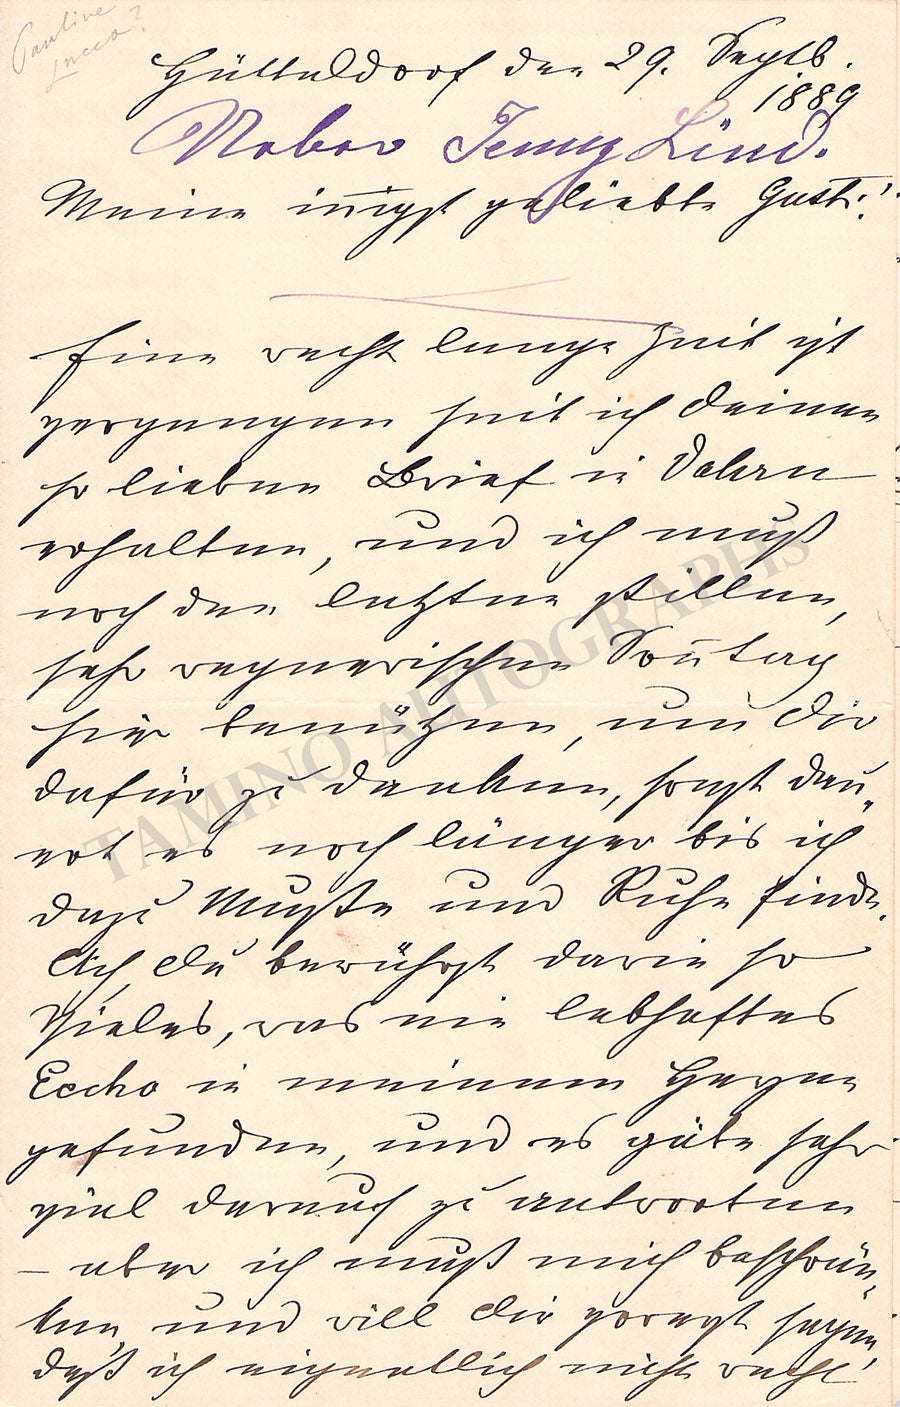 Pauline
Lucca?
Hütteldorf den 29. Septb.
1889
Ueber Jenny Lind.
Meine innigst geliebte Gusti!
Eine recht lange Zeit ist
vergangen seit ich Deinen
so lieben Brief in
erhalten, und ich muß
noch den letzten stillen,
sehr regnerischen Son̄tag
hier benützen, um Dir
dafür zu danken, sonst dau„
ert es noch länger bis ich
dazu Muße und Ruhe finde.
Ach, Du berührst darin so
Vieles, was ein lebhaftes
Eccho in meinem Herzen
gefunden, und es gäbe sehr
viel darauf zu antworten
– aber ich muß mich beschrän„
ken, und will Dir vorerst sagen,
daß ich eigentlich nicht recht
TAMINO AUTOGRAPHS